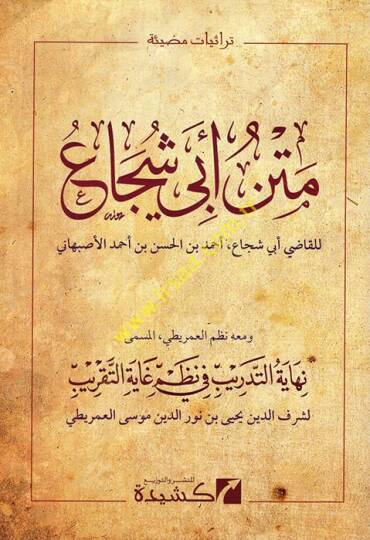 تراثيات مضيئة
مَتْنُ أَبِي شُجَاعُ
للقاضي أبي شجاع، أحمد بن الحسن بن أحمد الأصبهاني
ومعه نظم العمريطي، المسمى
نِهَايَةُ التَّدْرِيبِ فِي نَظْمِ غَايَةِ التَّقْرِيبِ
لشرف الدين يحيى بن نور الدين موسى العمريطي
للنشر والتوزيع
كشيدة